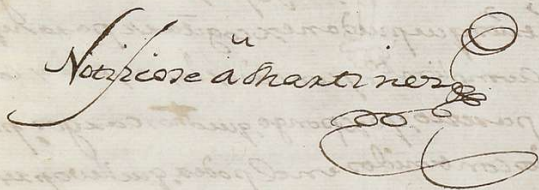 Notificose a Martinez